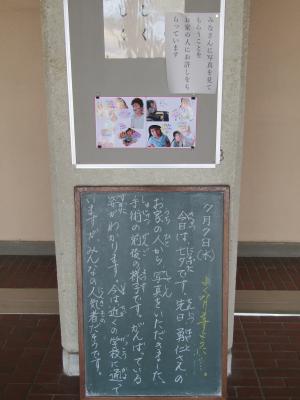 みなさんに写真を見て
もらうことを
お家の人にお許しをも
らっています
7月7日(水)
よくなりますように。
今日は、七夕です。先日 さんの
お家の人から写真をいただきました。
手術の前後の様子です。がんばっている
姿がわかります。今は近くの学校に通って
いますが、みんなの人気者だそうです。